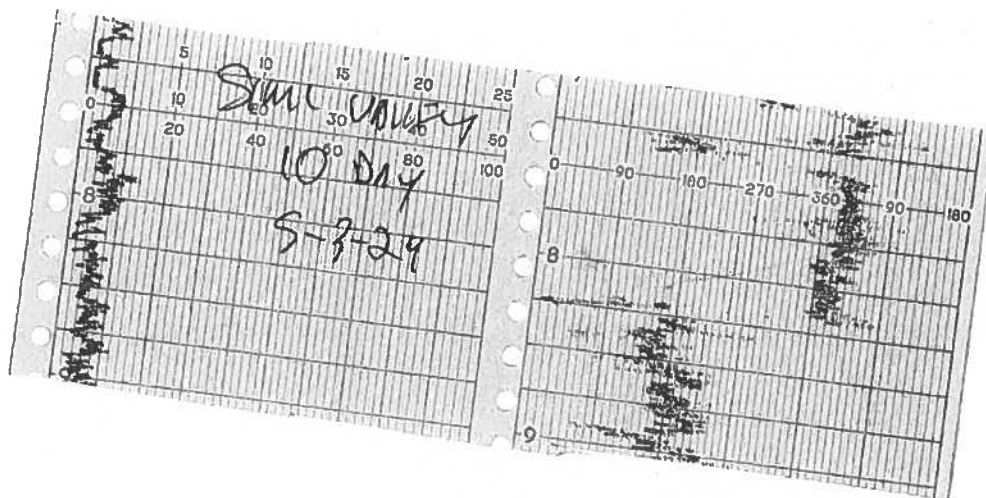 5 10 15 20 25
0 10 20 30 40 50
20 40 60 80 100
8
9
Simi Valley
10 Day
0 90 180 270 360 90 180
8
9